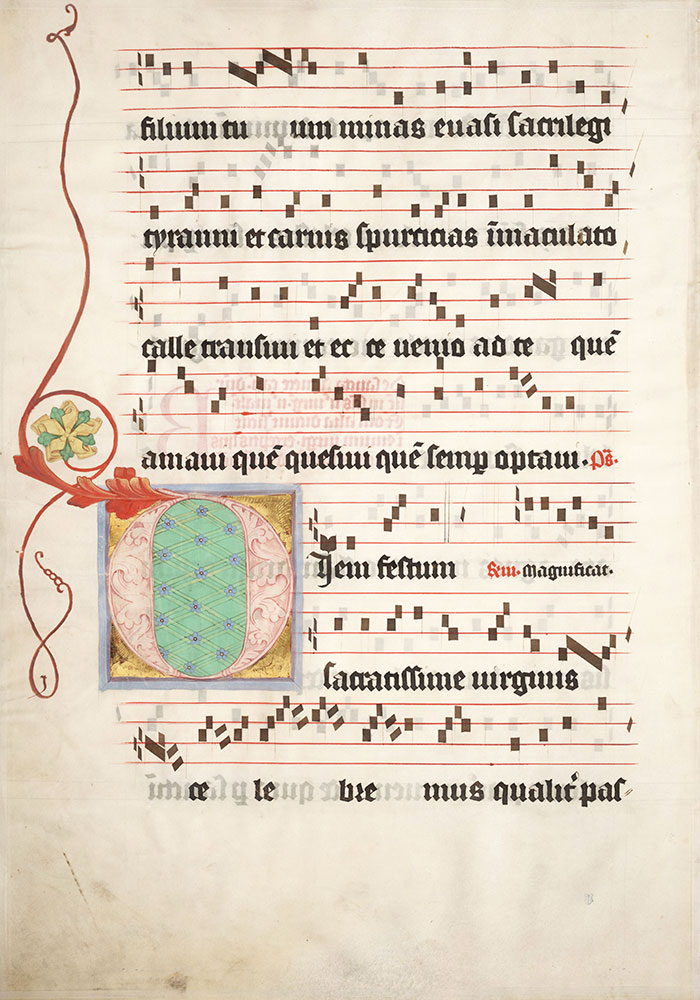 filium tu um minas euasi sacrilegi
tyranni et carnis spurticias īmaculato
calle transiui et ec ce uenio ad te quē
amaui quē quesiui quē semꝑ optaui. Ps̄.
DIem festum Magnificat.
sacratissime uirginis
ce le bre mus qualit᷑ pas⸗